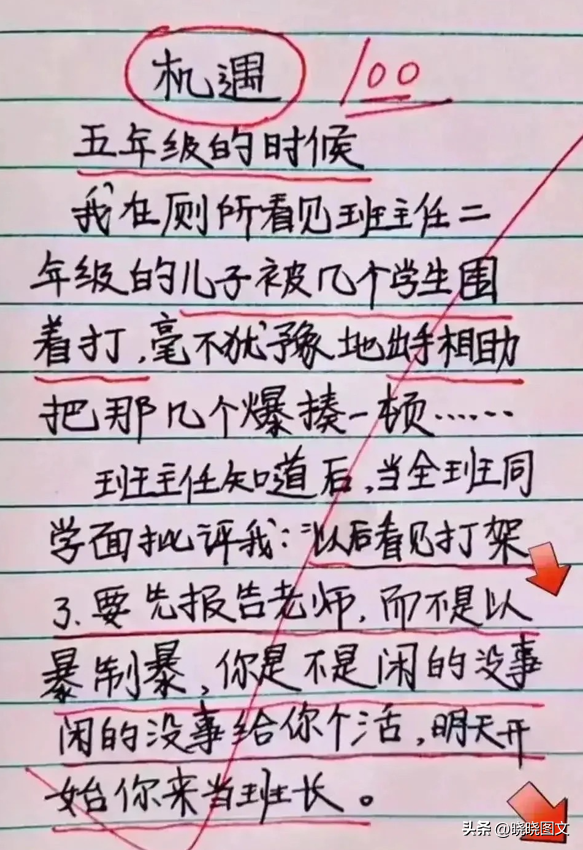 机遇 100
五年级的时候
我在厕所看见班主任二
年级的儿子被几个学生围
着打,毫不犹豫地出手相助
把那几个爆揍一顿……
班主任知道后,当全班同
学面批评我:以后看见打架
了.要先报告老师,而不是以
暴制暴,你是不是闲的没事
闲的没事给你个活,明天开
始你来当班长。
头条 @晓晓图文